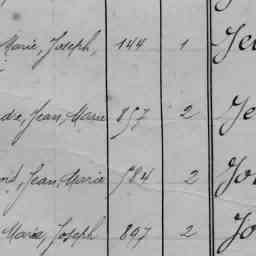 Marie, Joseph, 144 1 Je
Jean, Marie 857 2 Je
Jean, Marie 584 2 Jo
Marie, Joseph 897 2 Jo